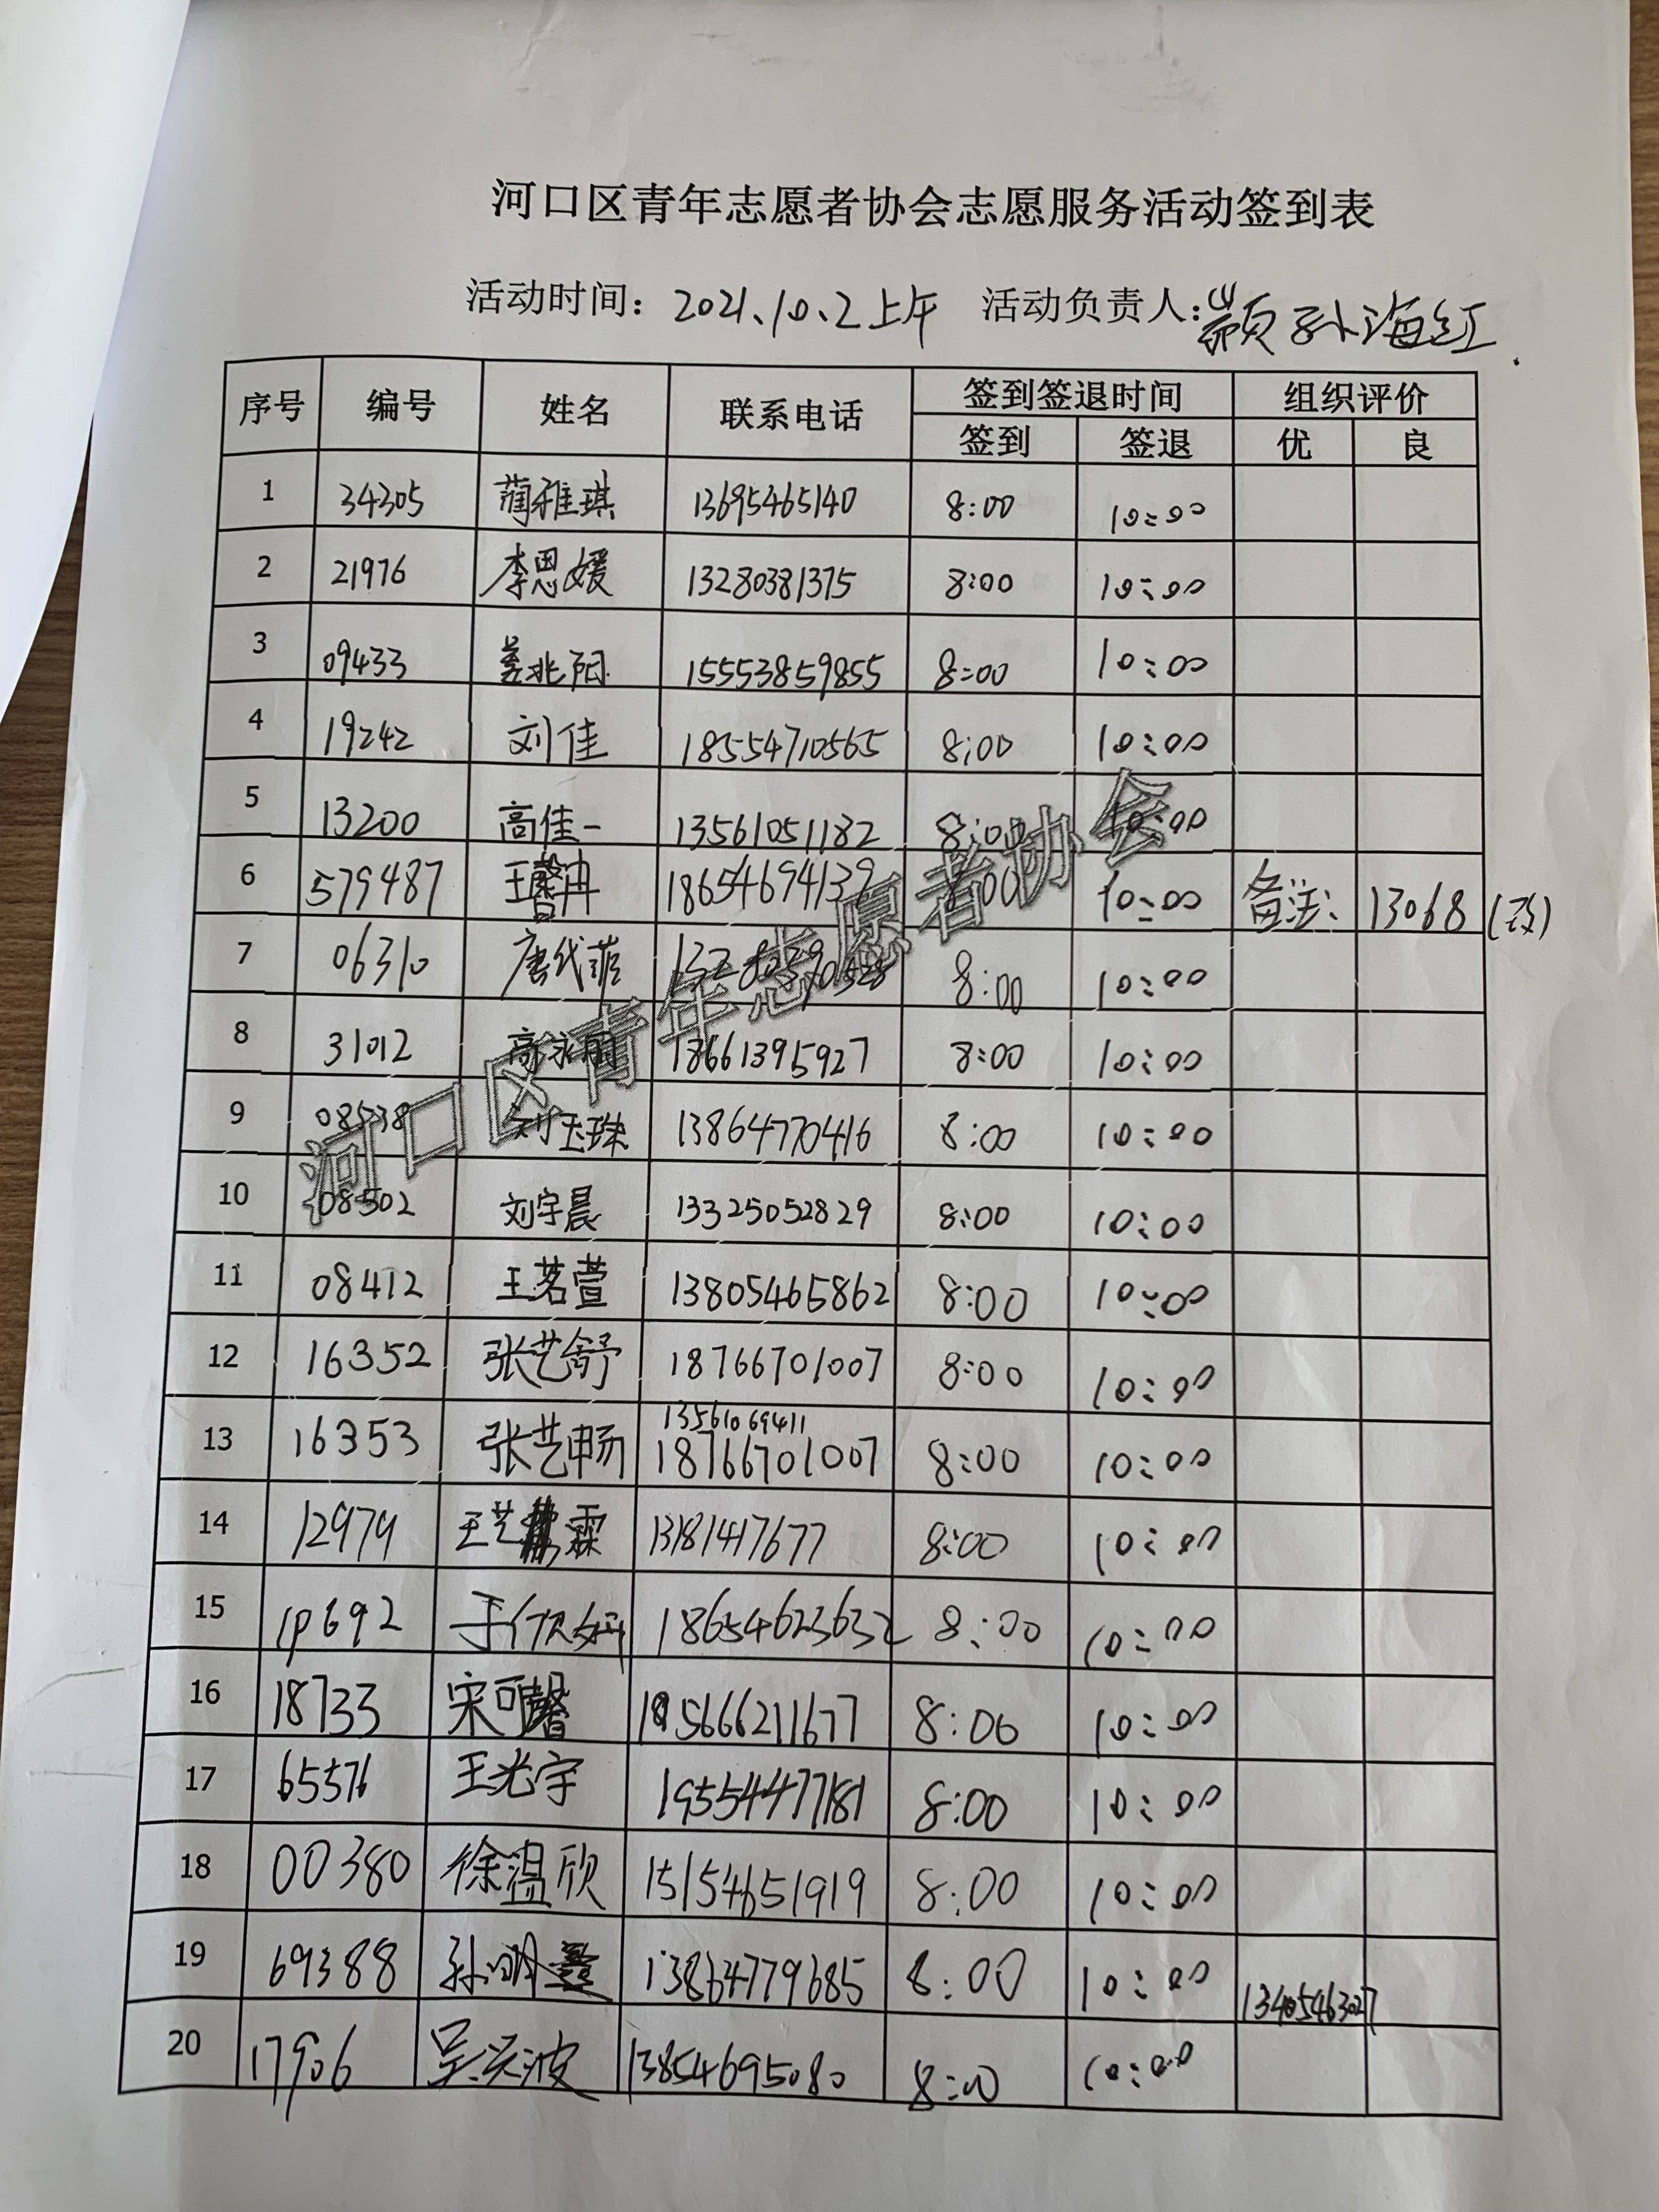 河口区青年志愿者协会志愿服务活动签到表
活动时间：2021、10、2上午 活动负责人：孙海红
序号 编号 姓名 联系电话 签到签退时间 组织评价
签到 签退 优 良
1 34305 蔺雅琪 13695465140 8:00 10:00
2 21976 李思媛 13280381375 8:00 10:00
3 09433 姜兆阳 15553859855 8:00 10:00
4 19242 刘佳 18554710565 8:00 10:00
5 13200 高佳一 13561051182 8:00 10:00
6 579487 王馨冉 18654694139 8:00 10:00 备注、 13068 (改)
7 06310 唐代菲 8:00 10:00
8 31012 高永 18661395927 8:00 10:00
9 08538 刘玉珠 13864770416 8:00 10:00
10 08502 刘宇晨 13325052829 8:00 10:00
11 08412 王茗萱 13805465862 8:00 10:00
12 16352 张艺舒 18766701007 8:00 10:00
13561069411
13 16353 张艺畅 18766701007 8:00 10:00
14 12979 王艺霖 13181417677 8:00 10:00
15 于欣 18654623632 8:00 10:00
16 18733 宋可馨 8:00 10:00
17 65576 王光宇 8:00 10:00
18 00380 徐温欣 15154651919 8:00 10:00
19 69388 孙明鑫 13864779685 8:00 10:00 13405463027
20 17906 吴天波 13854695080 8:00 10:00
河口区青年志愿者协会